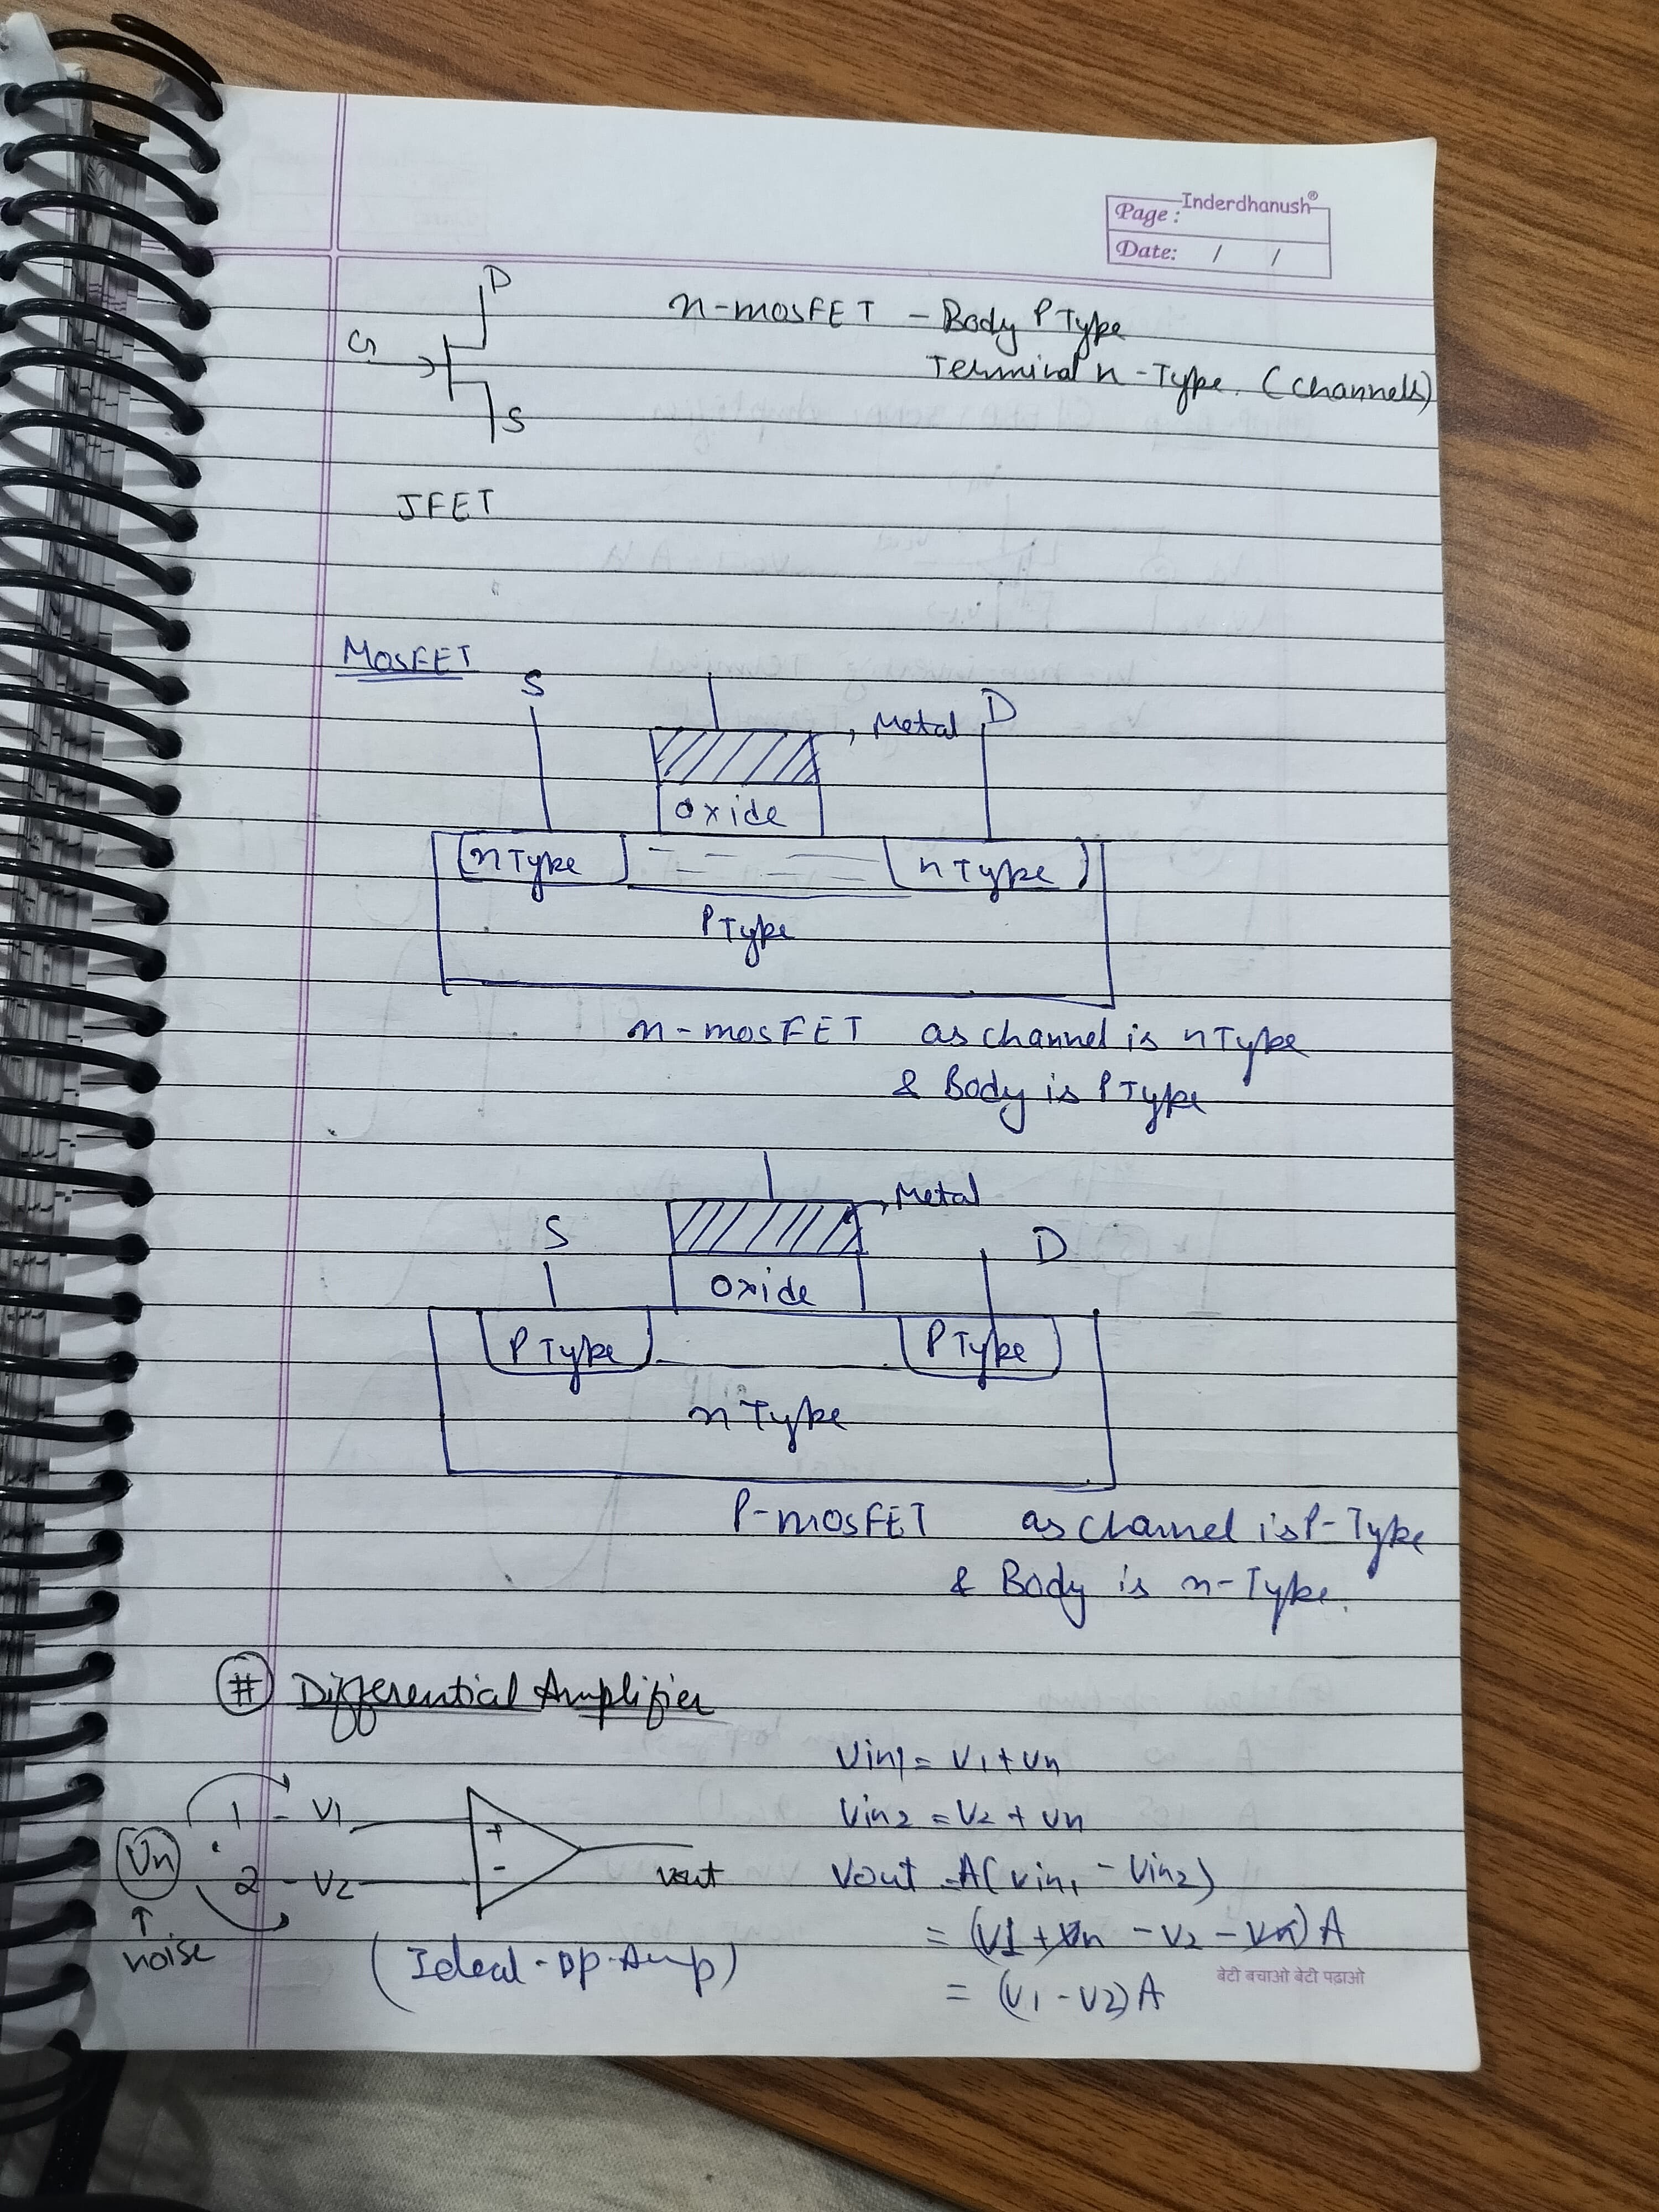 Inderdhanush®
Page:
Date: / /
D
G
S
n-mosFET - Body P Type
Terminal n-Type. (channels)
JFET
MosFET
S
D
Metal
oxide
n Type
n Type
P Type
n-mosFET as channel is n Type
& Body is P Type
Metal
S
D
oxide
P Type
P Type
n Type
P-mosFET as channel is P-Type
& Body is n-Type.
# Differential Amplifier
Vin1 = V1 + Vn
Vin2 = V2 + Vn
1 - V1
+
Vn
2 - V2
-
Vout
Vout = A(Vin1 - Vin2)
noise
(Ideal-Op-Amp)
= (V1 + Vn - V2 - Vn) A
= (V1 - V2) A
बेटी बचाओ बेटी पढ़ाओ